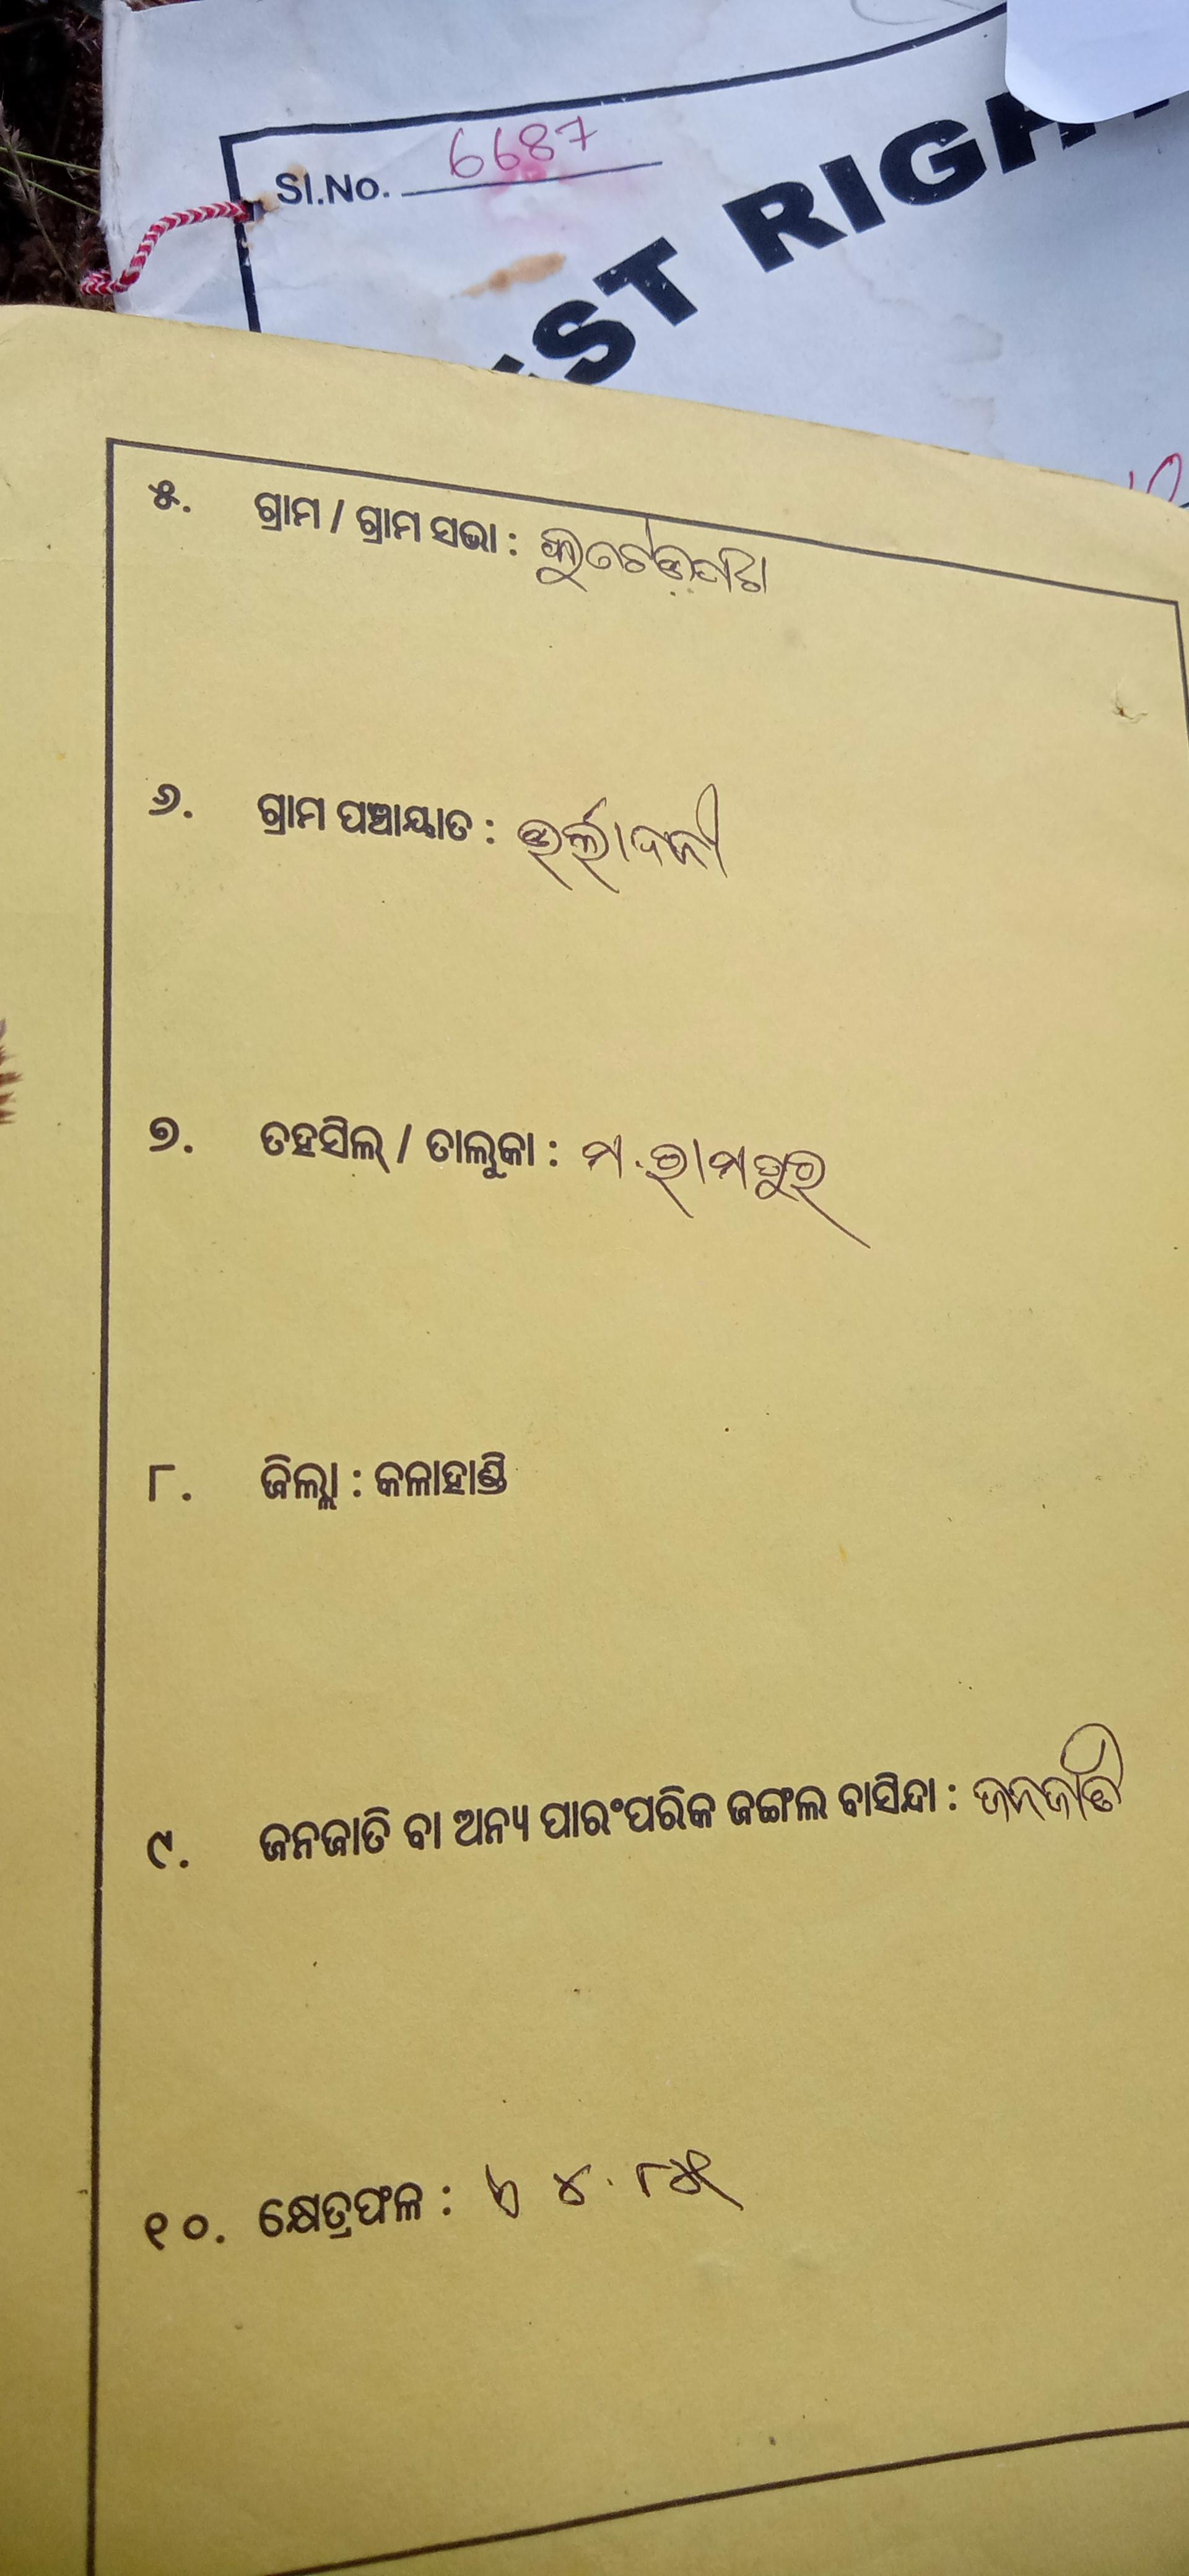 Sl.No. 6687
ST RIGH
୫. ଗ୍ରାମ / ଗ୍ରାମ ସଭା :
୬. ଗ୍ରାମ ପଞ୍ଚାୟାତ :
୭. ତହସିଲ୍ / ତାଲୁକା : ମ.ରାମପୁର
୮. ଜିଲ୍ଲା : କଳାହାଣ୍ଡି
୯. ଜନଜାତି ବା ଅନ୍ୟ ପାରଂପରିକ ଜଙ୍ଗଲ ବାସିନ୍ଦା : ଜନଜାତି
୧୦. କ୍ଷେତ୍ରଫଳ :